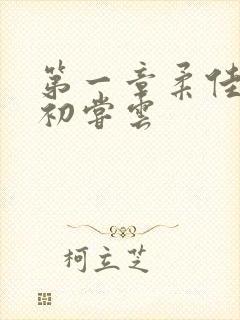 第一章柔佳
初尝雲
柯立芝